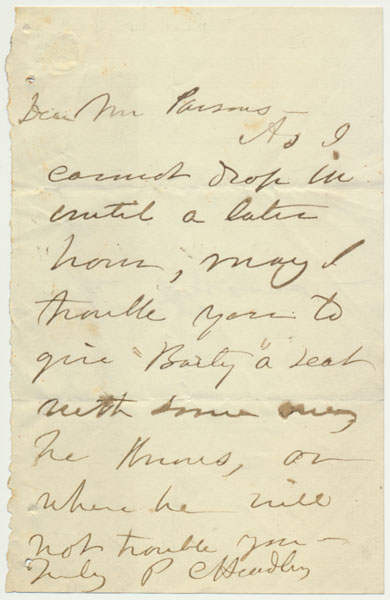 Dear Mr Parsons—
As I
cannot drop in
until a later
hour, may I
trouble you to
give "Barty" a seat
with some one,
he knows, or
where he will
not trouble you—
Truly P C Headley